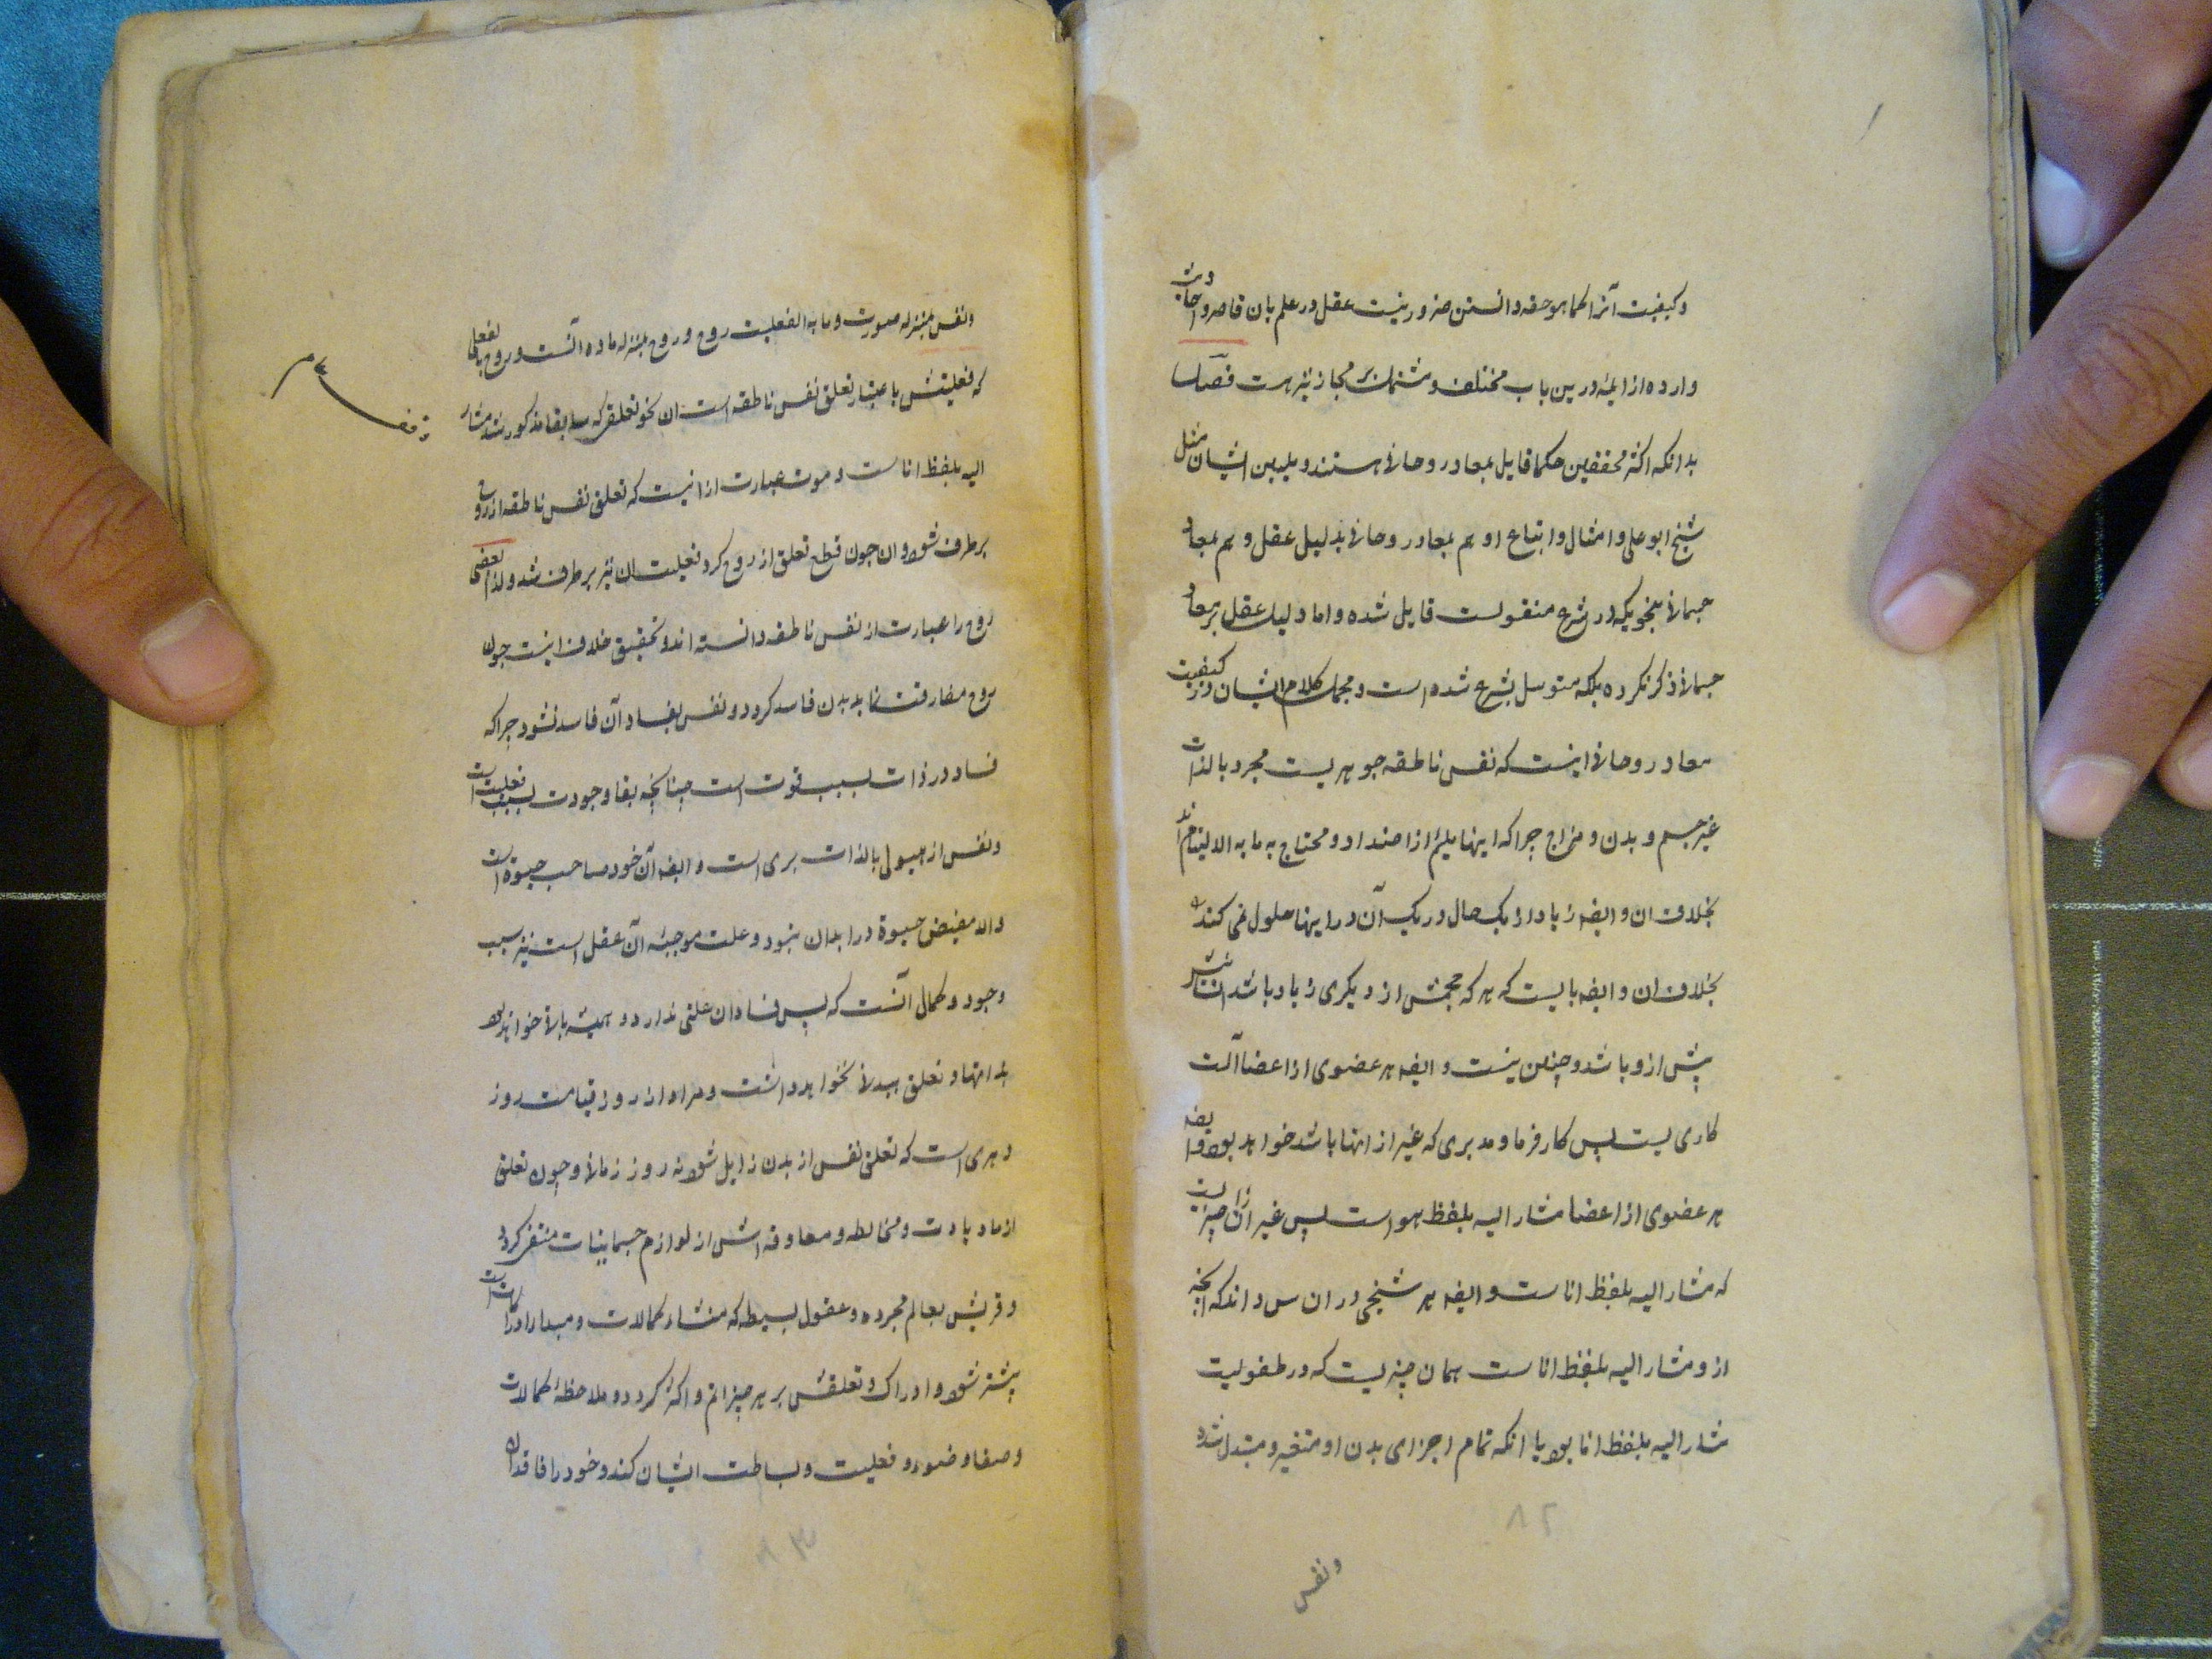 وکیفیت آنرا کما هو حقه دانستن ضرور نیست عقل در علم بان قاصر و احادیث
وارده از ایمه درین باب مختلف و مشتمل بر مجاز نیز هست فصل
بدانکه اکثر محققین حکما قایل بمعاد روحانی هستند و ملیین ایشان مثل
شیخ ابو علی و امثال و اتباع او هم بمعاد روحانی بدلیل عقل و هم بمعاد
جسمانی بنحویکه در شرع منقولست قایل شده و اما دلیل عقل بر معاد
جسمانی ذکر نکرده بلکه متوسل بشرع شده است و مجمل کلام ایشان در کیفیت
معاد روحانی اینست که نفس ناطقه جوهریست مجرد بالذات
غیر جسم و بدن و مزاج چرا که اینها ملتئم از اضداد و محتاج به ما به الالتیام اند
بخلاف ان و ایضه زیاد از یک حال در یک آن در اینها حلول نمی کند
بخلاف ان و ایضه بایست که هر که حجمش از دیگری زیاد باشد
پیش ازو باشد و چنین نیست و ایضه هر عضوی از اعضا آلت
کاری یست پس کارفرما و مدبری که غیر از انها باشد خواهد بود و ایضه
هر عضوی از اعضا مشار الیه بلفظ هو است پس غیر ازان چیزیست
که مشار الیه بلفظ انا ست و ایضه هر شخصی در ان سن داند که انچه
ازو مشار الیه بلفظ انا ست همان چیزیست که در طفولیت
مشار الیه بلفظ انا بود با انکه تمام اجزای بدن او متغیر و متبدل شده
۸۲
ونفس
ونفس بمنزله صورت و ما به الفعلیت روح و روح بمنزله ماده آنست و روح بالفعلی
که فعلیتش باعتبار تعلق نفس ناطقه است ان نحو تعلقی که سابقا مذکور شد مشار
الیه بلفظ انا ست و موت عبارت از انیست که تعلق نفس ناطقه از روح
برطرف شود و ان چون قطع تعلق از روح کرد فعلیت ان نیز برطرف شد و لذا بعضی
روح را عبارت از نفس ناطقه دانسته اند و تحقیق خلاف اینست چون
روح مفارقت نماید بدن فاسد کردد و نفس بفساد آن فاسد نشود چرا که
فساد در ذات بسبب قوت است چنانچه بقا وجودت بسبب فعلیت است
ونفس از هیولی بالذات بری است و ایضه آن خود صاحب حیوة است
والا مفیض حیوة در ابدان نبود و علت موجبه آن عقل است نیز سبب
وجود و کمال آنست که پس فساد ان علتی ندارد و همیشه باقی خواهد بود
و تعلق ببدنی نخواهد داشت و مراد از روز قیامت روز
دهری است که تعلق نفس از بدن زایل شود نه روز زمانی و چون تعلق
از مادیات و مخالطه و معاوقه اش از لوازم جسمانیات منتفی کرد
و قربش بعالم مجرده و عقول بسیطه که منشاء کمالات و مبدا ادراکات است
بیشتر شود و ادراک و تعلقش بر هر چیز اتم و اکثر کردد و ملاحظۀ کمالات
و صفا و ضوء و فعلیت و بساطت ایشان کند و خود را فاقد ان
۸۳